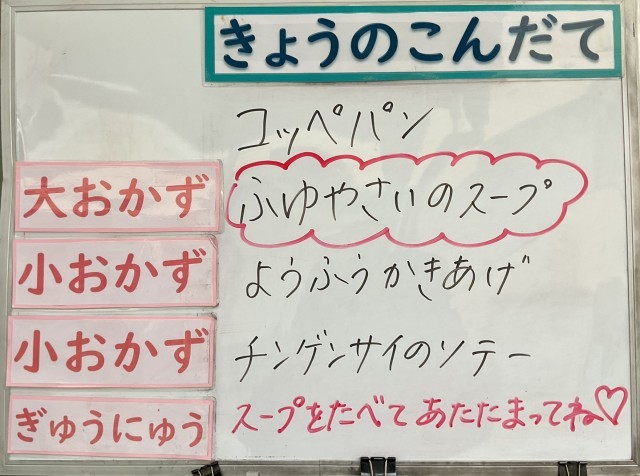 きょうのこんだて
コッペパン
大おかず ふゆやさいのスープ
小おかず ようふうかきあげ
小おかず チンゲンサイのソテー
ぎゅうにゅう スープをたべてあたたまってね♡